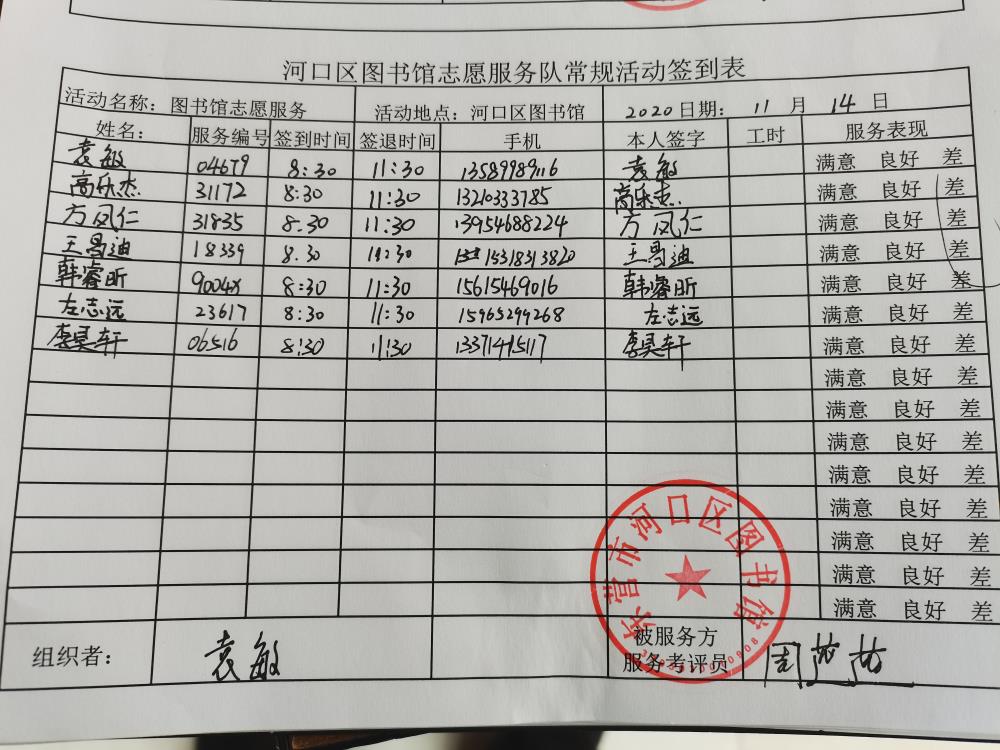 河口区图书馆志愿服务队常规活动签到表
活动名称：图书馆志愿服务 活动地点：河口区图书馆 2020日期： 11 月 14 日
姓名： 服务编号 签到时间 签退时间 手机 本人签字 工时 服务表现
袁敏 04679 8:30 11:30 13589989116 袁敏 满意 良好 差
高乐杰 31172 8:30 11:30 13210333785 高乐杰 满意 良好 差
方凤仁 31835 8:30 11:30 13954688224 方凤仁 满意 良好 差
王昌迪 18339 8:30 11:30 15318313820 王昌迪 满意 良好 差
韩睿昕 8:30 11:30 15615469016 韩睿昕 满意 良好 差
左志远 23617 8:30 11:30 15965299268 左志远 满意 良好 差
李昊轩 06516 8:30 11:30 13371415117 李昊轩 满意 良好 差
满意 良好 差
满意 良好 差
满意 良好 差
满意 良好 差
满意 良好 差
满意 良好 差
满意 良好 差
满意 良好 差
东营市河口区图书馆
组织者： 袁敏 被服务方
服务考评员 周